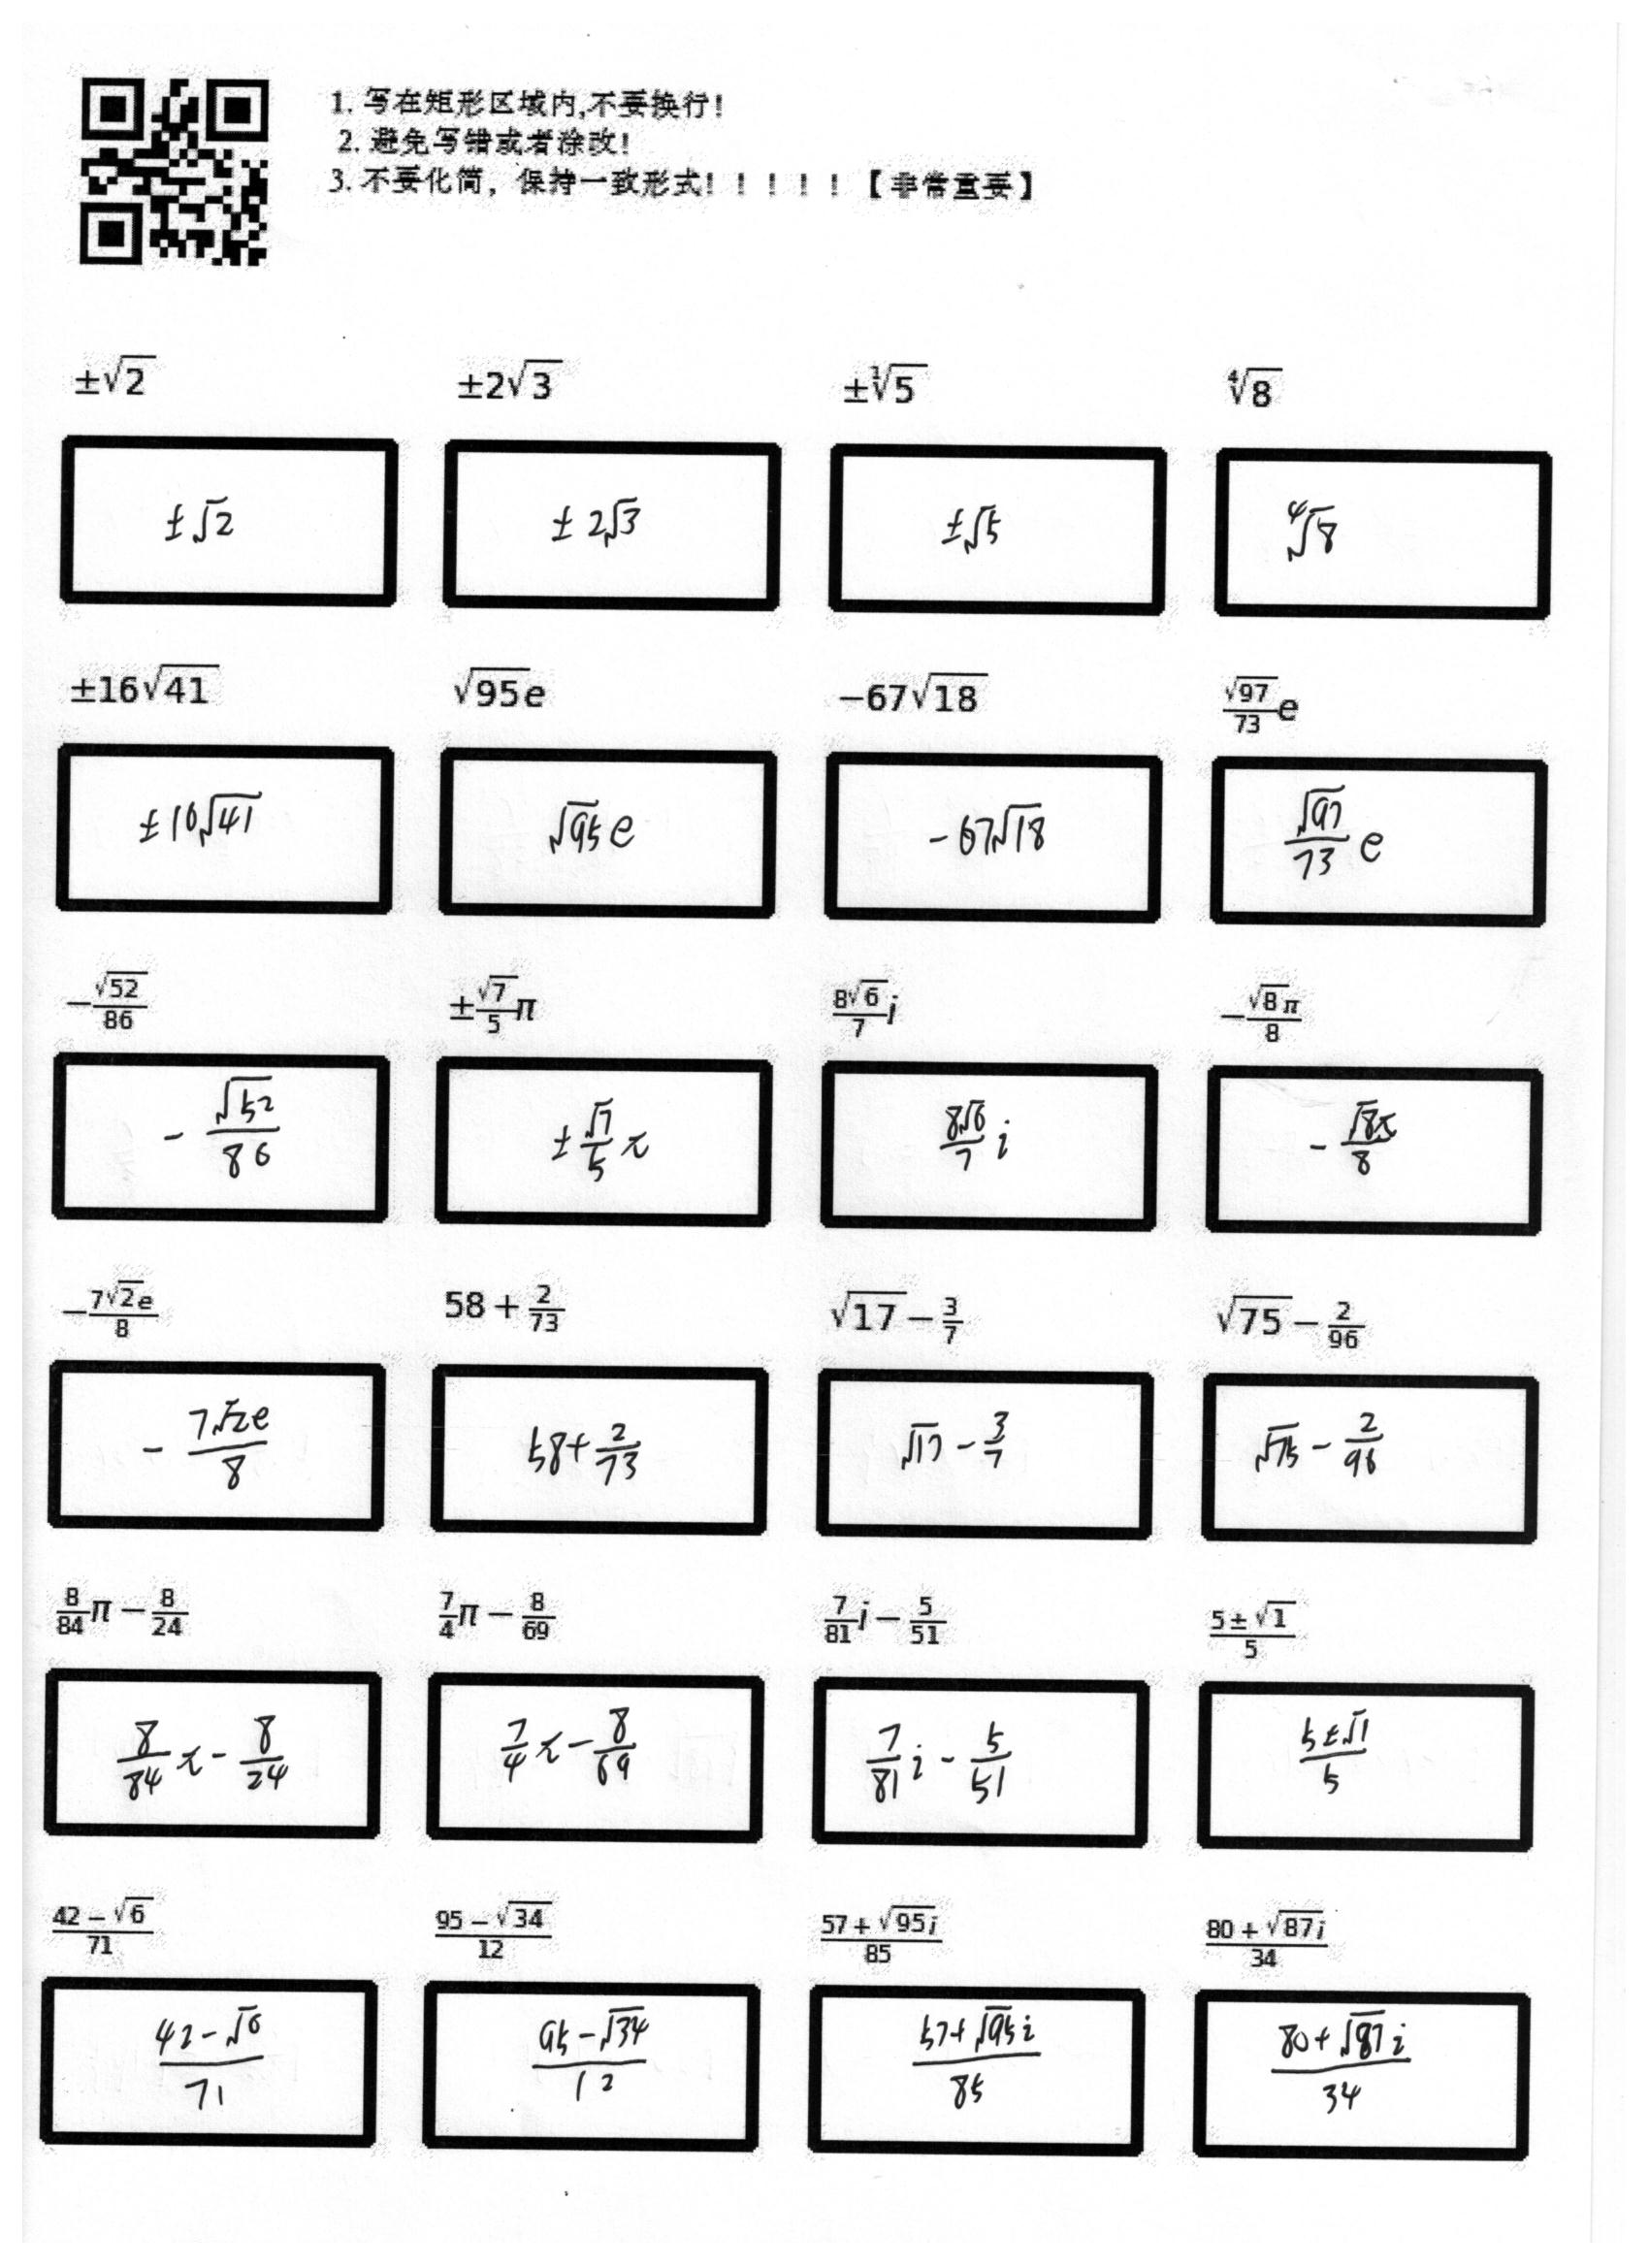 1. 写在矩形区域内,不要换行!
2. 避免写错或者涂改!
3. 不要化简，保持一致形式! ! ! ! ! 【非常重要】
±√2 ±2√3 ±∛[1]{5} ∜8
±√2 ±2√3 ±√5 ∜8
±16√41 √95e −67√18 √97/73 e
±16√41 √95e −67√18 √97/73 e
−√52/86 ±√7/5 π 8√6/7 i −√8π/8
−√52/86 ±√7/5 π 8√6/7 i −√8π/8
−7√2e/8 58 + 2/73 √17 − 3/7 √75 − 2/96
−7√2e/8 58 + 2/73 √17 − 3/7 √75 − 2/96
8/84 π − 8/24 7/4 π − 8/69 7/81 i − 5/51 (5 ± √1)/5
8/84 π − 8/24 7/4 π − 8/69 7/81 i − 5/51 (5 ± √1)/5
(42 − √6)/71 (95 − √34)/12 (57 + √95i)/85 (80 + √87i)/34
(42 − √6)/71 (95 − √34)/12 (57 + √95i)/85 (80 + √87i)/34